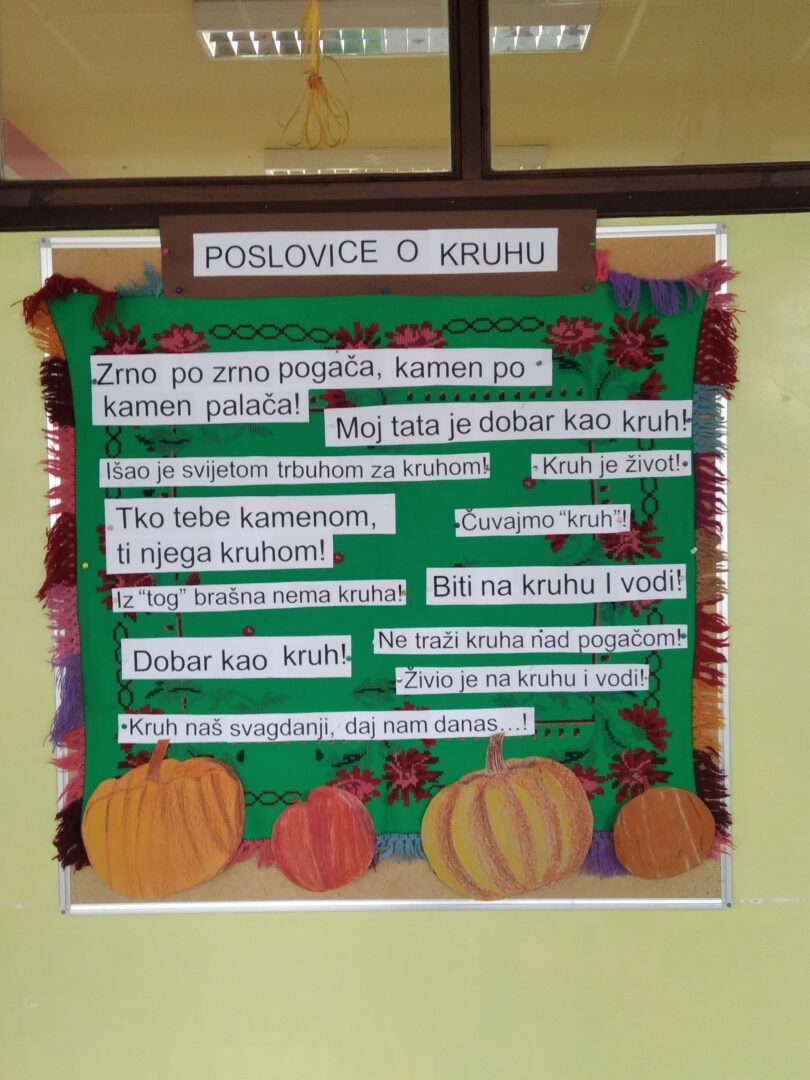 POSLOVICE O KRUHU
Zrno po zrno pogača, kamen po
kamen palača!
Moj tata je dobar kao kruh!
Išao je svijetom trbuhom za kruhom!
Kruh je život!
Tko tebe kamenom,
ti njega kruhom!
Čuvajmo “kruh”!
Iz “tog” brašna nema kruha!
Biti na kruhu I vodi!
Ne traži kruha nad pogačom!
Dobar kao kruh!
Živio je na kruhu i vodi!
Kruh naš svagdanji, daj nam danas...!